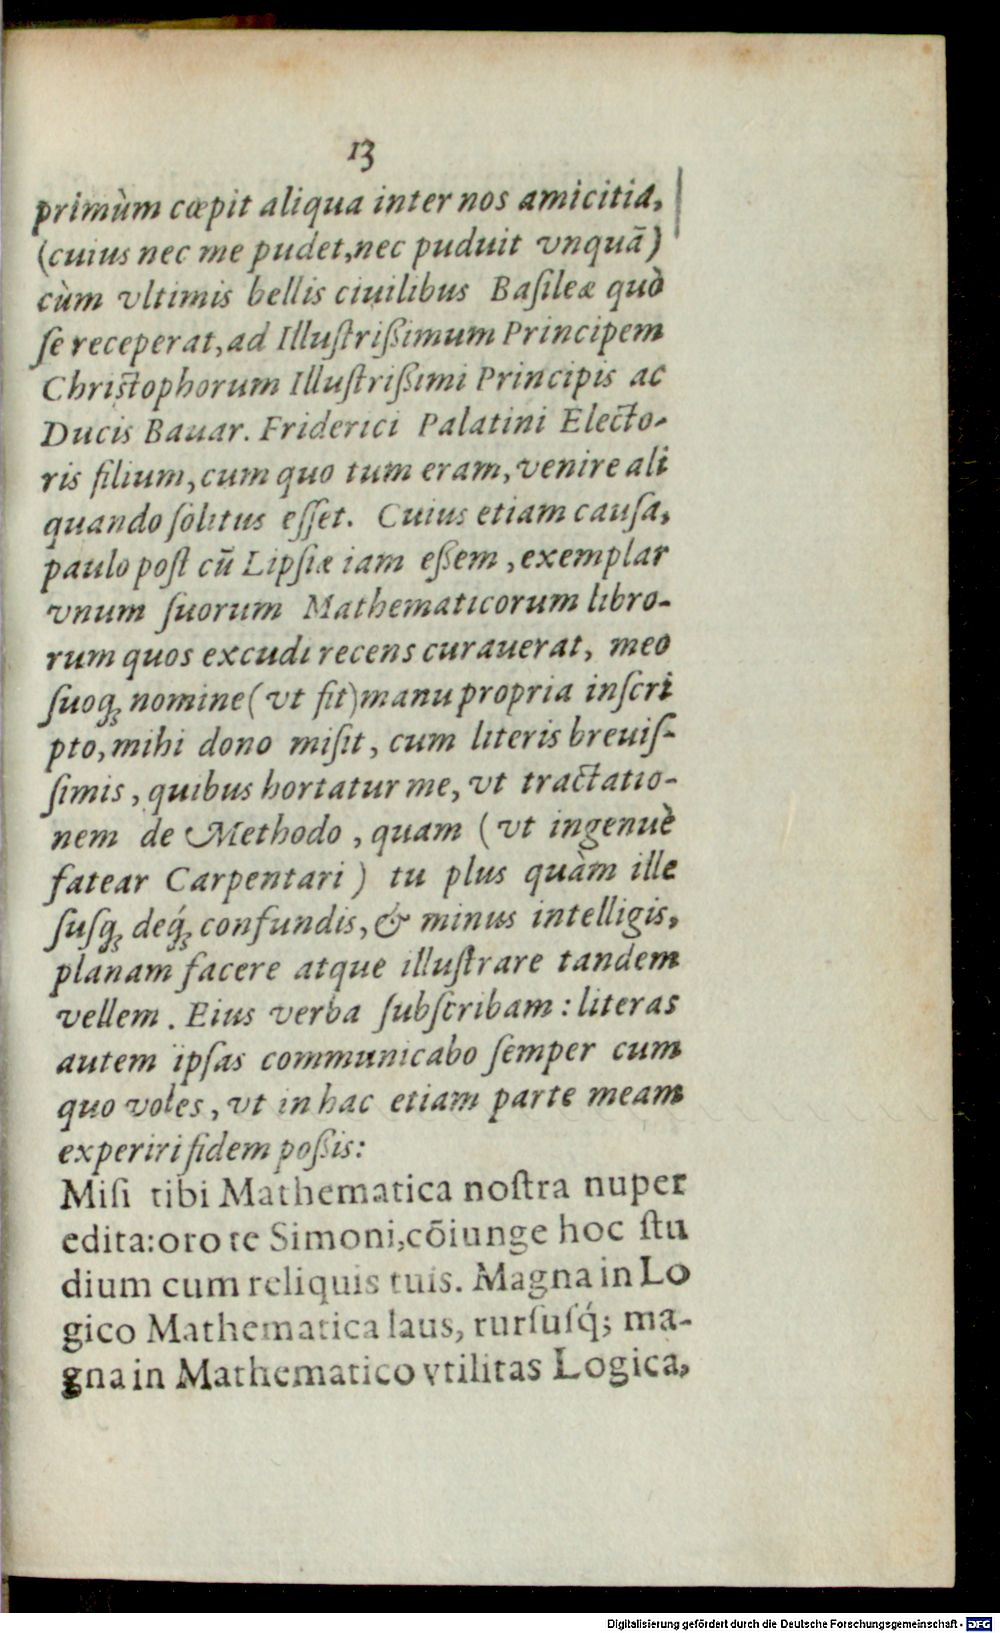 13
primùm cœpit aliqua inter nos amicitia,
(cuius nec me pudet, nec puduit vnquā)
cùm vltimis bellis ciuilibus Baſileæ quò
ſe receperat, ad Illuſtrißimum Principem
Chriſtophorum Illuſtrißimi Principis ac
Ducis Bauar. Friderici Palatini Electo-
ris filium, cum quo tum eram, venire ali
quando ſolitus eſſet. Cuius etiam cauſa,
paulo poſt cū Lipſiæ iam eßem, exemplar
vnum ſuorum Mathematicorum libro-
rum quos excudi recens curauerat, meo
ſuoq́ꝫ nomine (vt fit) manu propria inſcri
pto, mihi dono miſit, cum literis breuiſ-
ſimis, quibus hortatur me, vt tractatio-
nem de Methodo, quam (vt ingenuè
fatear Carpentari) tu plus quàm ille
ſuſqꝫ deq́ꝫ confundis, & minus intelligis,
planam facere atque illuſtrare tandem
vellem. Eius verba ſubſcribam: literas
autem ipſas communicabo ſemper cum
quo voles, vt in hac etiam parte meam
experiri fidem poßis:
Miſi tibi Mathematica noſtra nuper
edita: oro te Simoni, cōiunge hoc ſtu
dium cum reliquis tuis. Magna in Lo
gico Mathematica laus, rurſuſq́; ma-
gna in Mathematico vtilitas Logica,
Digitalisierung gefördert durch die Deutsche Forschungsgemeinschaft - DFG